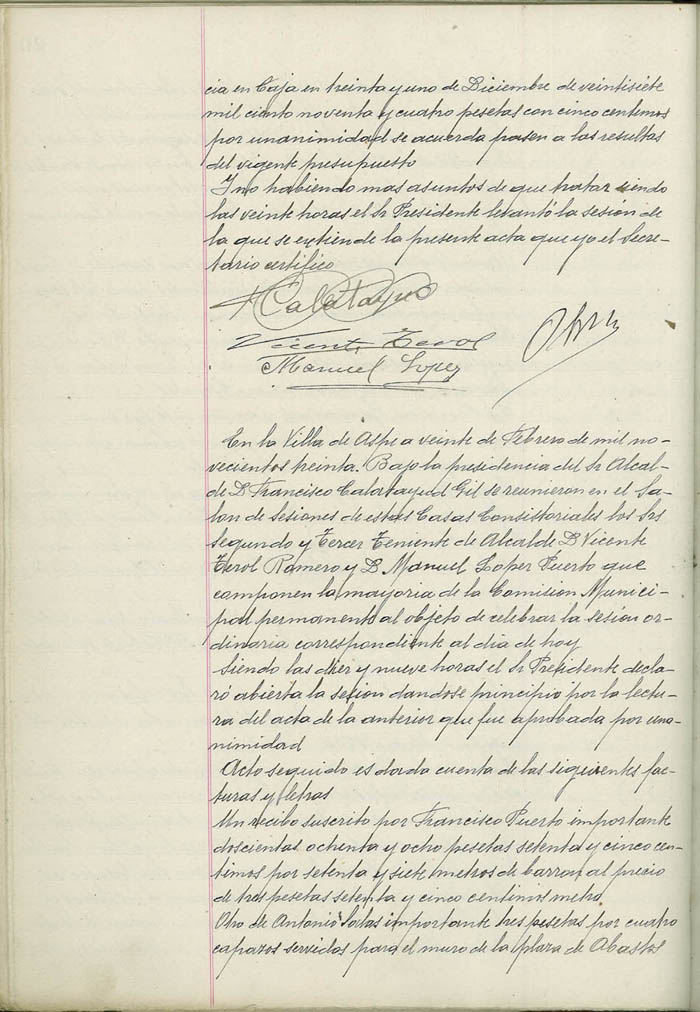 cia en Caja en treinta y uno de Diciembre de veintisiete
mil ciento noventa y cuatro pesetas con cinco centimos
por unanimidad se acuerda pasen a las resultas
del vigente presupuesto
Y no habiendo mas asuntos de que tratar siendo
las veinte horas el Sr Presidente levantó la sesión de
la que se extiende la presente acta que yo el Secre-
tario certifico
Calatayud
Vicente Terol
Manuel Lopez
En la Villa de Aspe a veinte de Febrero de mil no-
vecientos treinta. Bajo la presidencia del Sr Alcal-
de D. Francisco Calatayud Gil se reunieron en el Sa-
lon de sesiones de estas Casas Consistoriales los Srs
segundo y Tercer Teniente de Alcalde D. Vicente
Terol Romero y D. Manuel Lopez Puerto que
componen la mayoria de la Comision Munici-
pal permanente al objeto de celebrar la sesión or-
dinaria correspondiente al dia de hoy
Siendo las diez y nueve horas el Sr Presidente decla-
ró abierta la sesion dandose principio por la lectu-
ra del acta de la anterior que fue aprobada por una-
nimidad
Acto seguido es dada cuenta de las siguientes fac-
turas y letras
Un recibo suscrito por Francisco Puerto importante
doscientas ochenta y ocho pesetas setenta y cinco cen-
timos por setenta y siete metros de barron al precio
de tres pesetas setenta y cinco centimos metro
Otro de Antonio importante tres pesetas por cuatro
capazos servidos para el muro de la plaza de Abastos